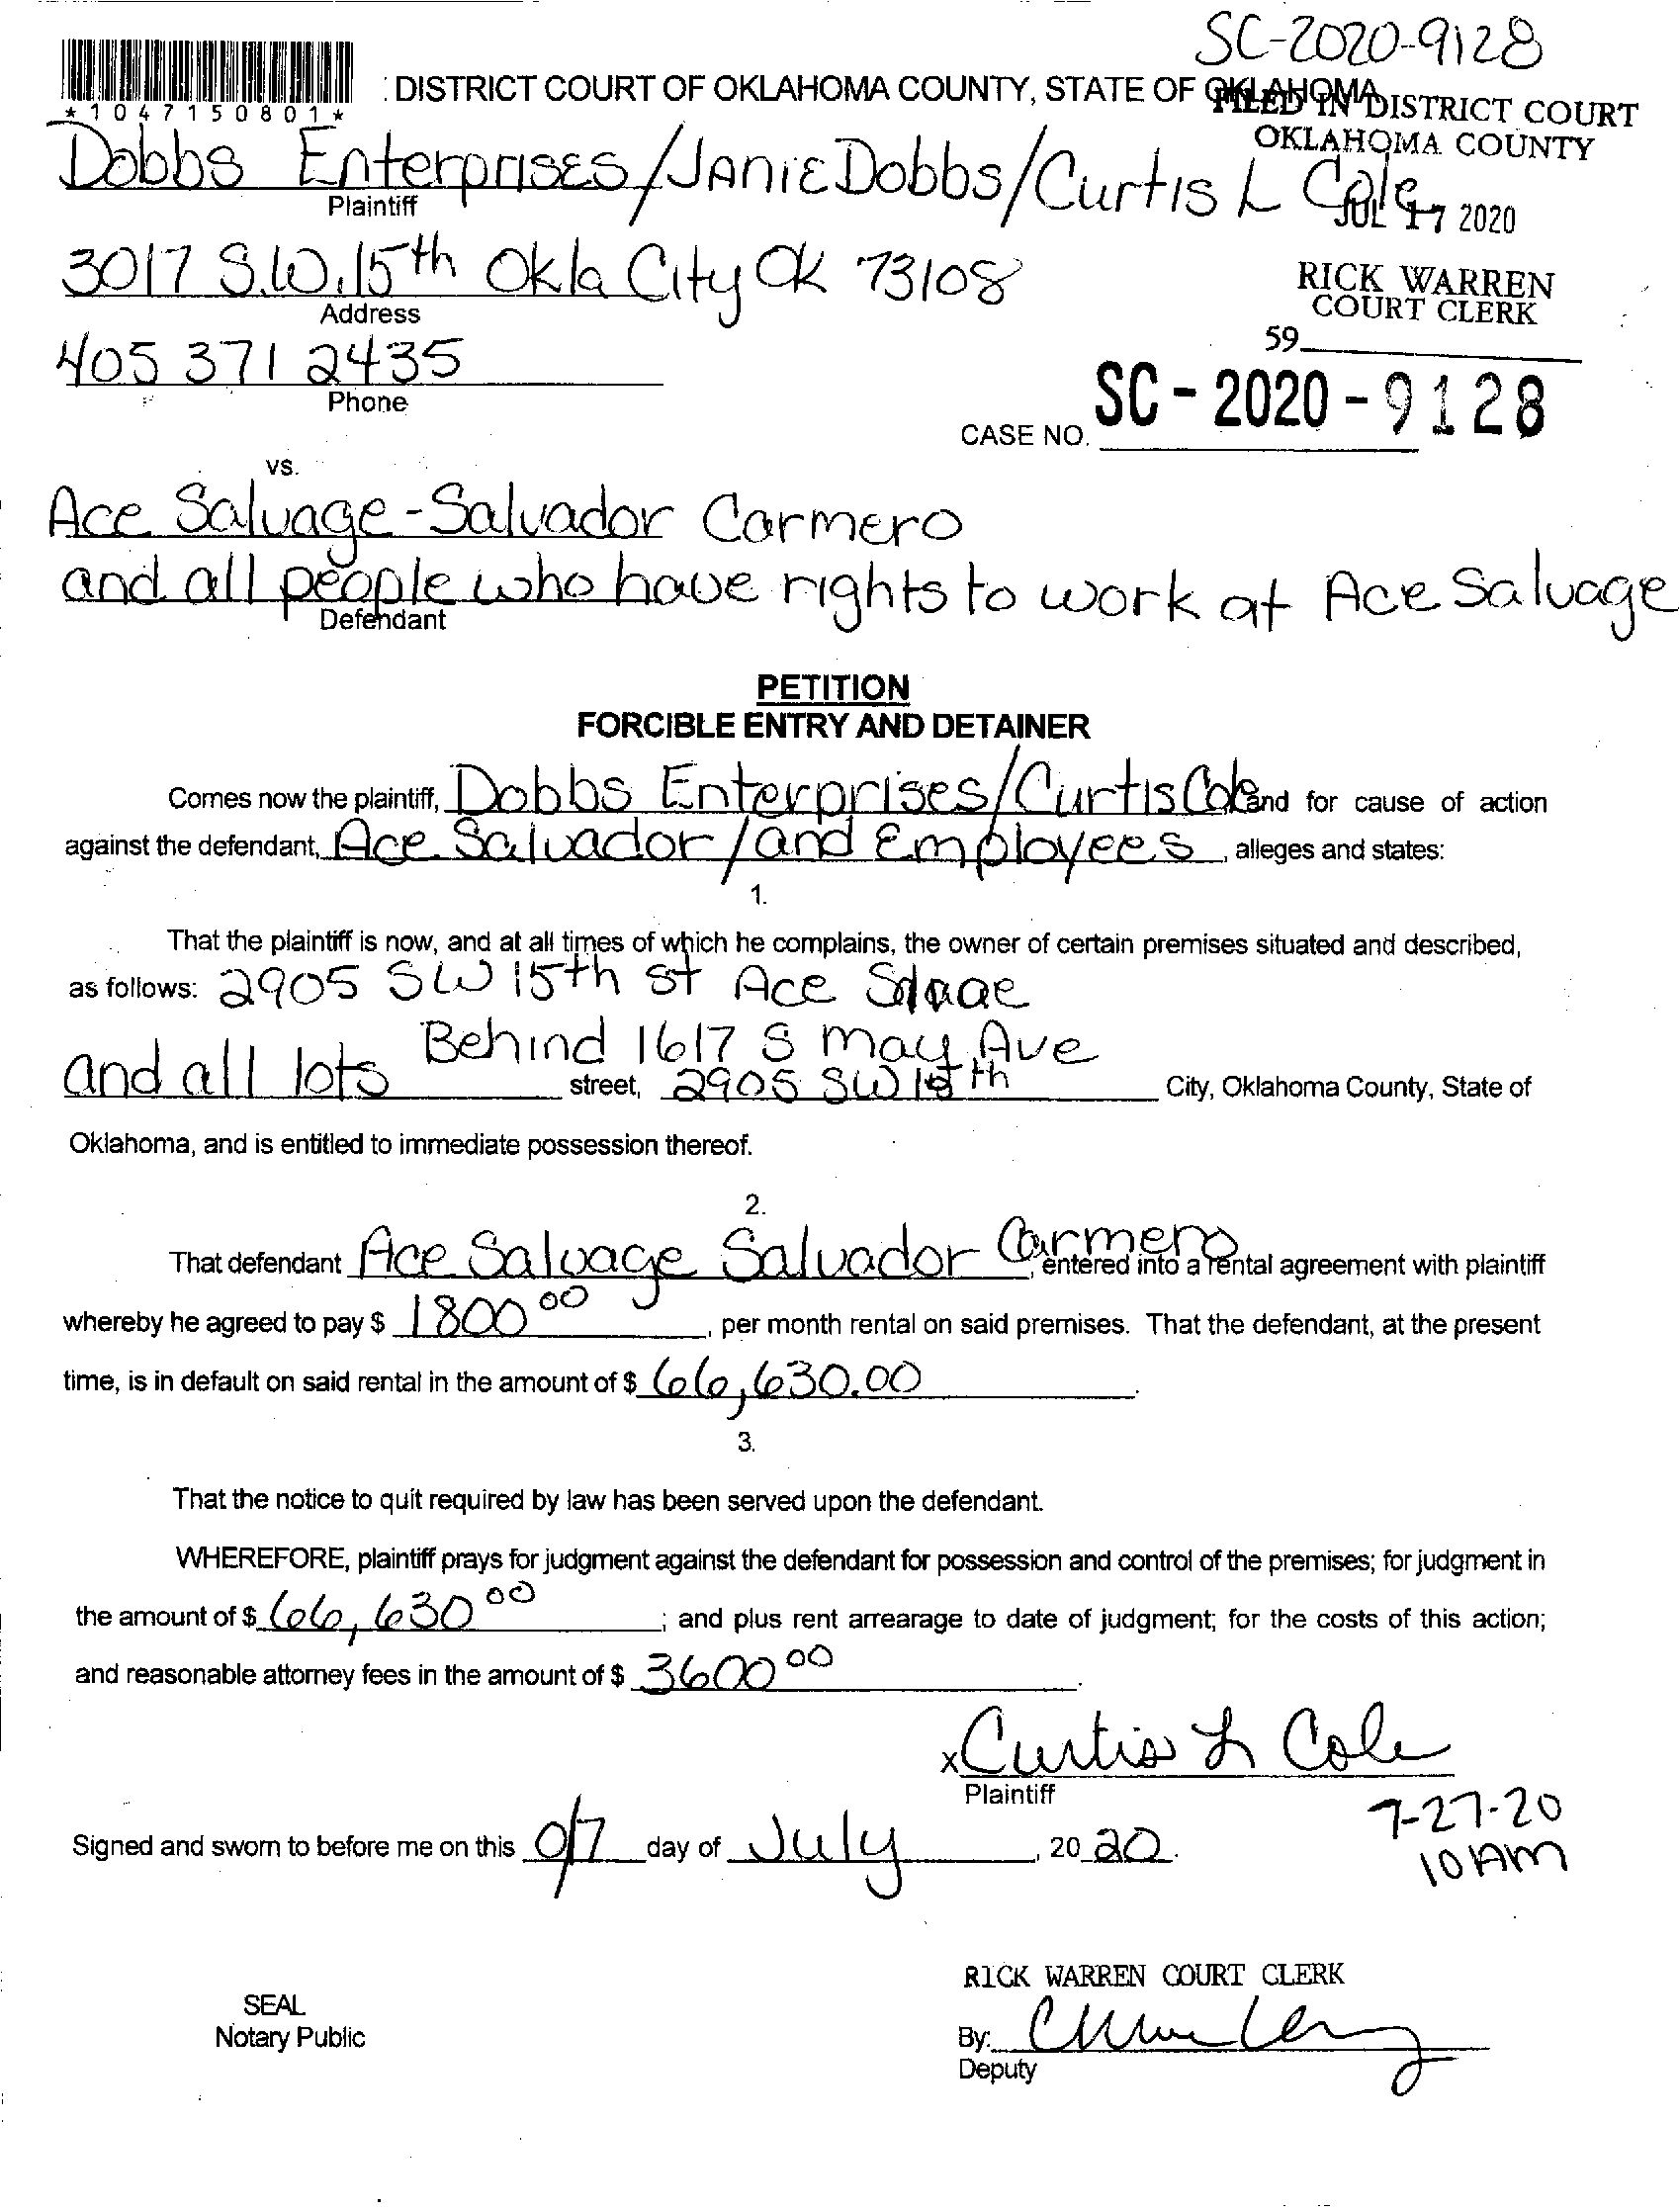 SC-2020-9128
: DISTRICT COURT OF OKLAHOMA COUNTY, STATE OF OKLAHOMA
FILED IN DISTRICT COURT
*1047150801*
OKLAHOMA COUNTY
Dobbs Enterprises/JANIE Dobbs/Curtis L Cole
Plaintiff
JUL 17 2020
3017 S.W. 15th Okla City OK 73108
Address
RICK WARREN
COURT CLERK
59
405 371 2435
Phone
CASE NO. SC-2020-9128
vs.
Ace Salvage-Salvador Carmero
and all people who have rights to work at Ace Salvage
Defendant
PETITION
FORCIBLE ENTRY AND DETAINER
Comes now the plaintiff, Dobbs Enterprises/Curtis Cole and for cause of action
against the defendant, Ace Salvador/and Employees, alleges and states:
1.
That the plaintiff is now, and at all times of which he complains, the owner of certain premises situated and described,
as follows: 2905 SW 15th st Ace
Behind 1617 S May Ave
and all lots street, 2905 SW 15th City, Oklahoma County, State of
Oklahoma, and is entitled to immediate possession thereof.
2.
That defendant Ace Salvage Salvador Carmero, entered into a rental agreement with plaintiff
whereby he agreed to pay $ 1800 00, per month rental on said premises. That the defendant, at the present
time, is in default on said rental in the amount of $ 66,630.00.
3.
That the notice to quit required by law has been served upon the defendant.
WHEREFORE, plaintiff prays for judgment against the defendant for possession and control of the premises; for judgment in
the amount of $ 66,630 00; and plus rent arrearage to date of judgment; for the costs of this action;
and reasonable attorney fees in the amount of $ 3600 00.
x Curtis L Cole
Plaintiff
7-27-20
10 AM
Signed and sworn to before me on this 0/7 day of July, 20 20.
RICK WARREN COURT CLERK
SEAL
Notary Public
By:
Deputy